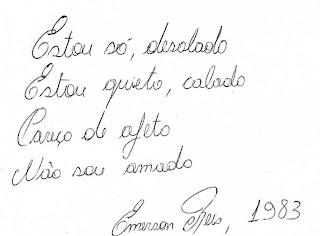 Estou só, desolado
Estou quieto, calado
Careço de afeto
Não sou amado
Emerson Reis, 1983